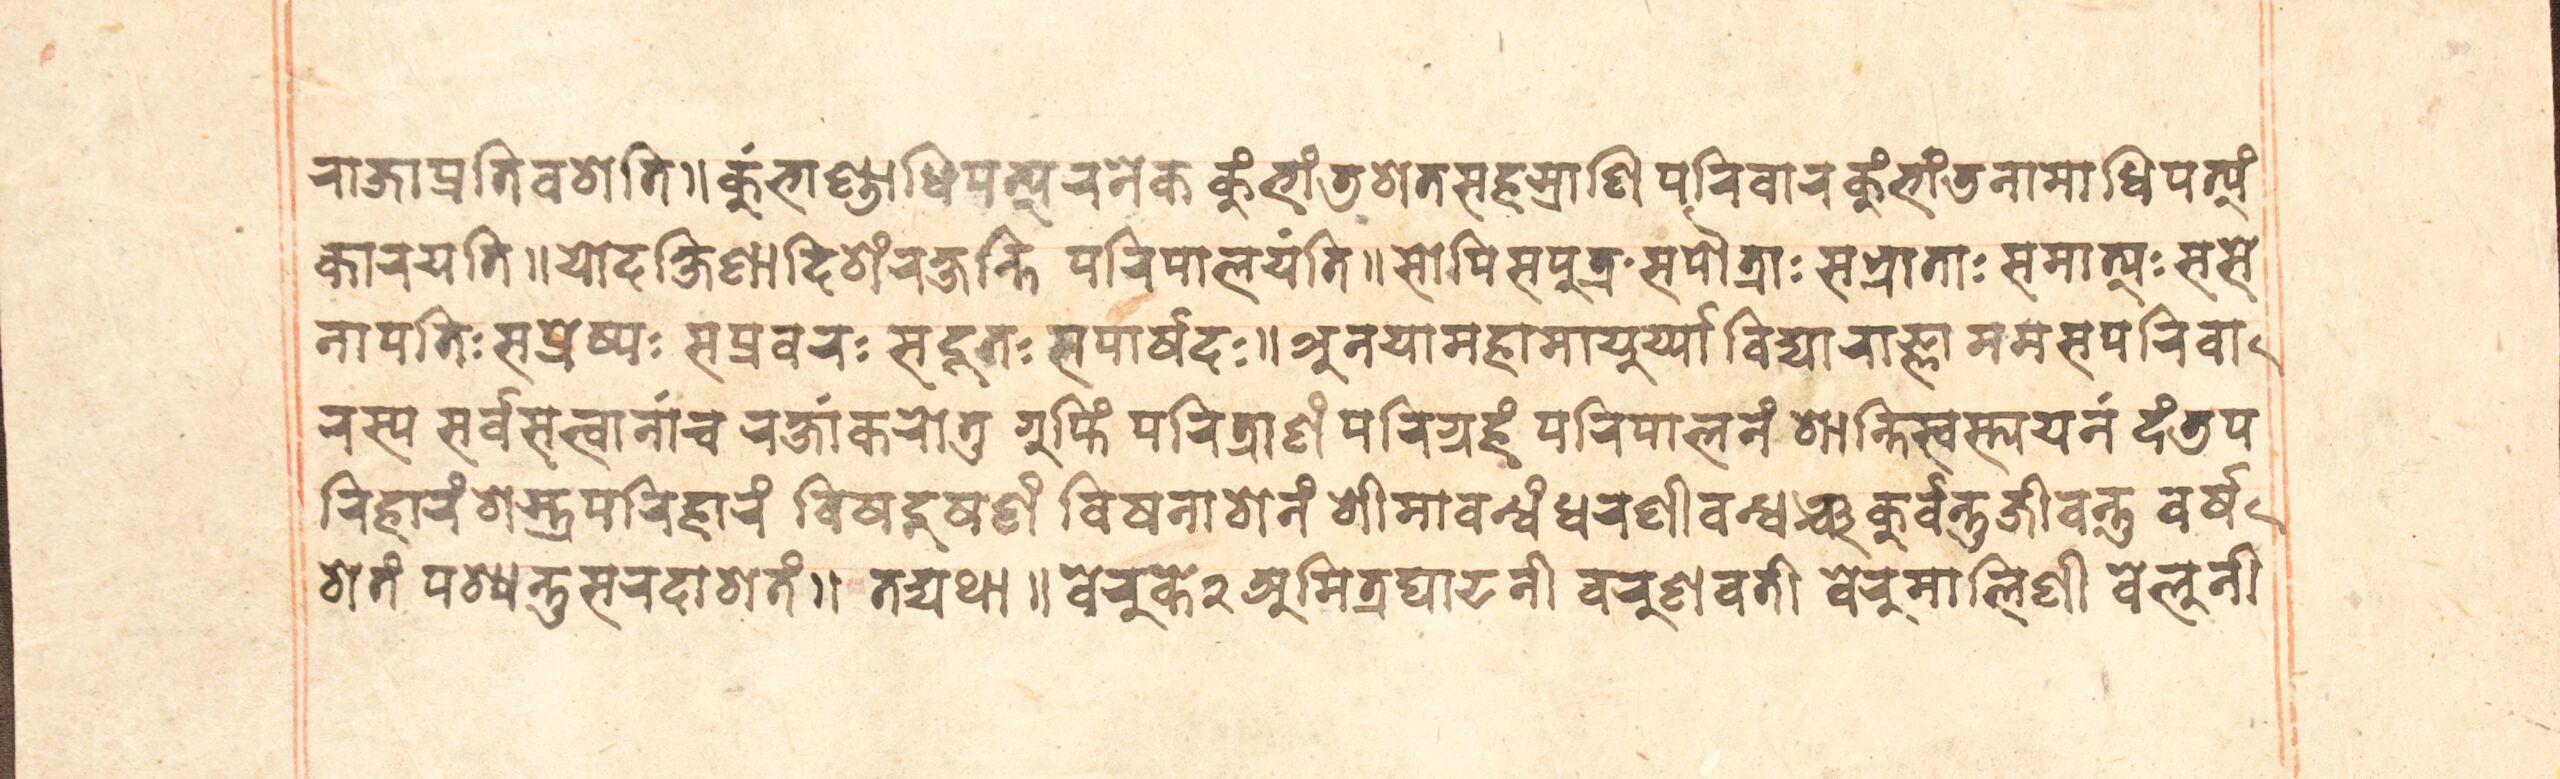 राजाप्रतिवशति॥ कुंभाण्डाधिपत्यरनेक कुंभांडशतसहस्राणि परिवार कुंभांडनामाधिपत्यं
कारयति॥ योदक्षिणादिशंरक्षन्ति परिपालयंति॥ सोपिसपुत्रः सपौत्राः सभ्राताः समात्यः ससे
नापतिः सप्रेष्यः सप्रवरः सदूतः सपार्षदः॥ अनयामहामायुर्य्या विद्याराज्ञा ममसपरिवा
रस्य सर्वसत्वानांच रक्षांकरोतु गुप्तिं परित्राणं परिग्रहं परिपालनं शान्तिस्वस्त्ययनं दंडप
रिहारं शस्त्रपरिहारं विषदूषणं विषनाशनं शीमावन्धं धरणीवन्धञ्च कुर्वन्तुजीवन्तु वर्ष
शतं पश्यन्तुसरदाशतं॥ तद्यथा॥ वेरुक्के२ अमित्रघाटनी वरुणवती वेरुमालिणी वेलुनी